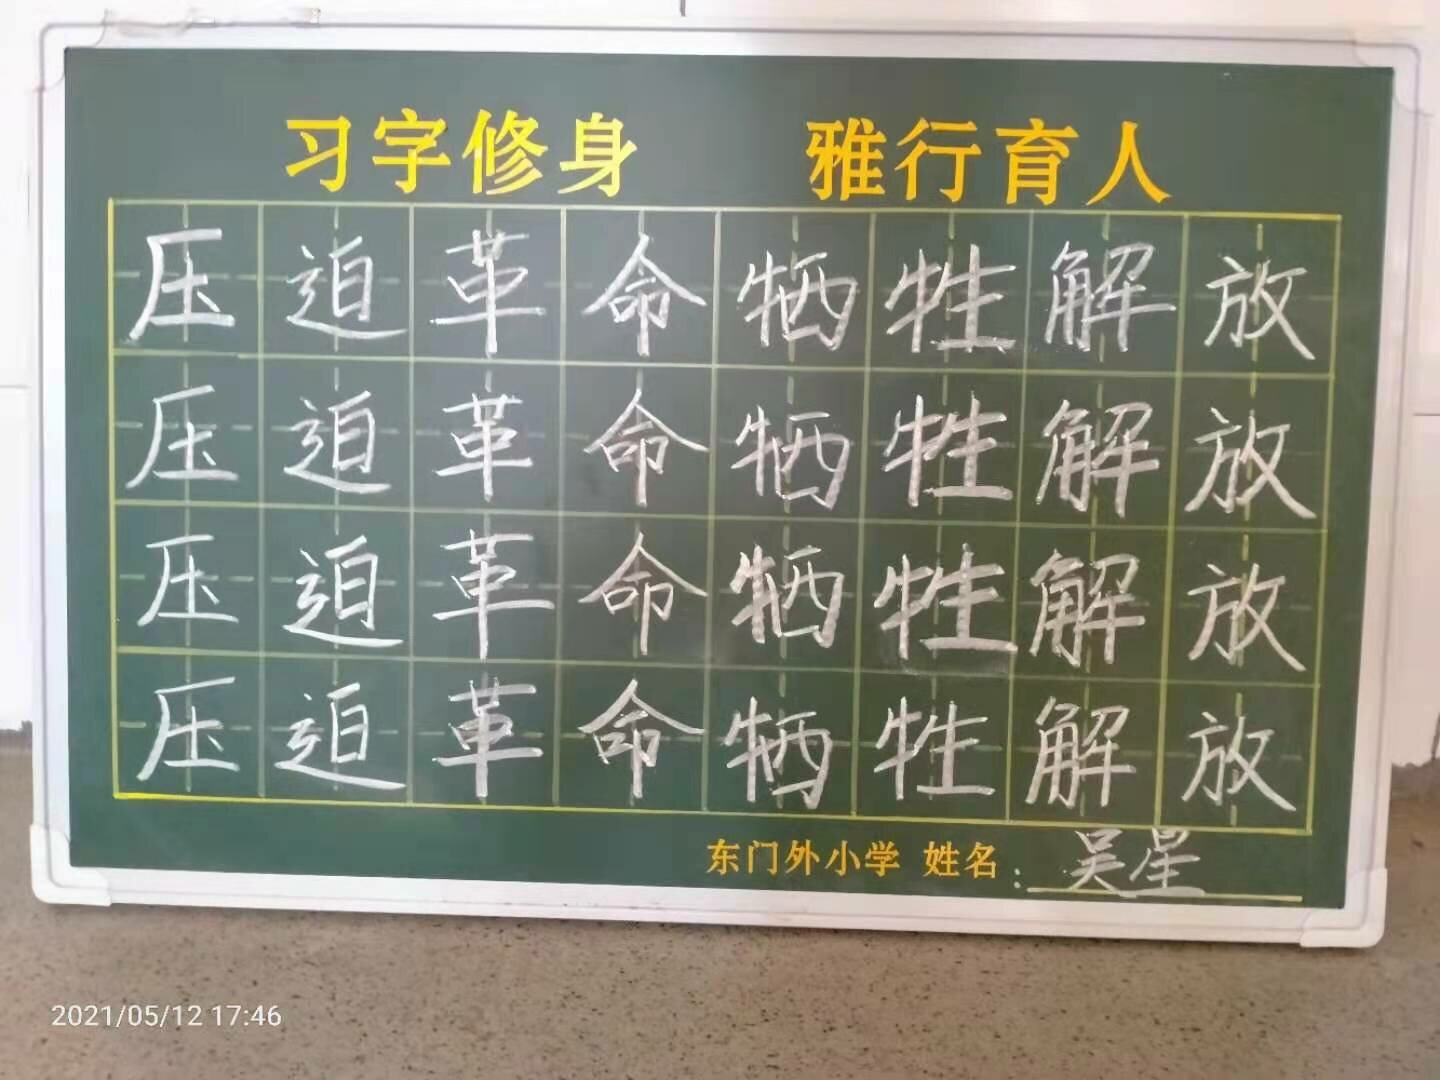 习字修身 雅行育人
压迫革命牺牲解放
压迫革命牺牲解放
压迫革命牺牲解放
压迫革命牺牲解放
东门外小学 姓名：吴星
2021/05/12 17:46